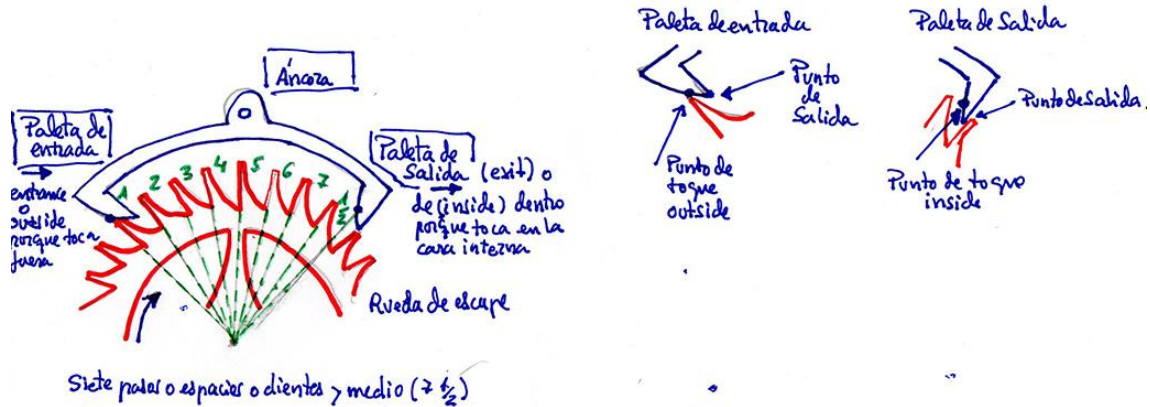 Áncora
Paleta de
entrada
entrance
o
outside
porque toca
fuera
1 2 3 4 5 6 7 1/2
Paleta de
Salida (exit) o
de (inside) dentro
porque toca en la
cara interna
Rueda de escape
Siete pasos o espacios o dientes y medio (7 1/2)
Paleta de entrada
Punto
de
Salida
Punto de
toque
outside
Paleta de Salida
Punto de Salida
Punto de toque
inside